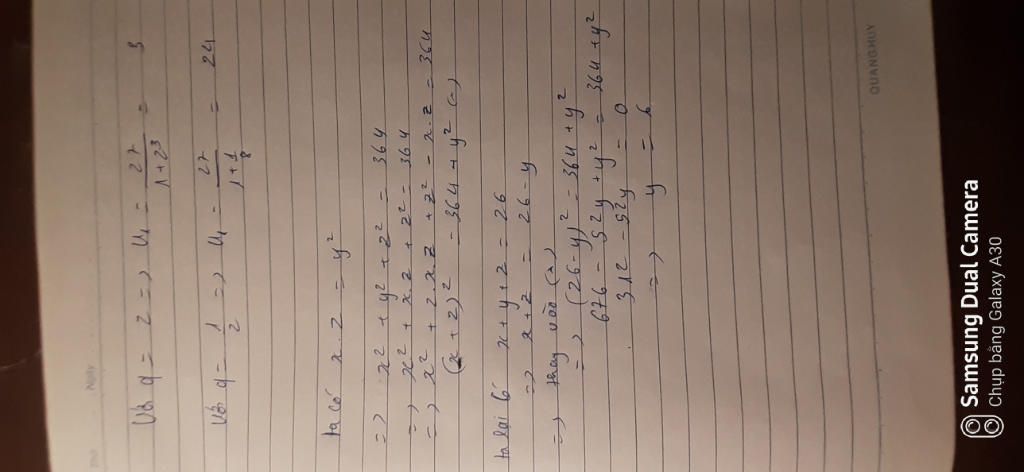 Thứ Ngày
Với q = 2 => U₁ = 27/(1+2³) = 3
Với q = 1/2 => U₁ = 27/(1+1/8) = 24
ta có x . z = y²
=> x² + y² + z² = 364
=> x² + xz + z² = 364
=> x² + 2.xz + z² - x.z = 364
(x + z)² = 364 + y² (*)
ta lại có x + y + z = 26
=> x + z = 26 - y
=> thay vào (*)
=> (26-y)² = 364 + y²
676 - 52y + y² = 364 + y²
312 - 52y = 0
=> y = 6
QUANG HUY
Samsung Dual Camera
Chụp bằng Galaxy A30